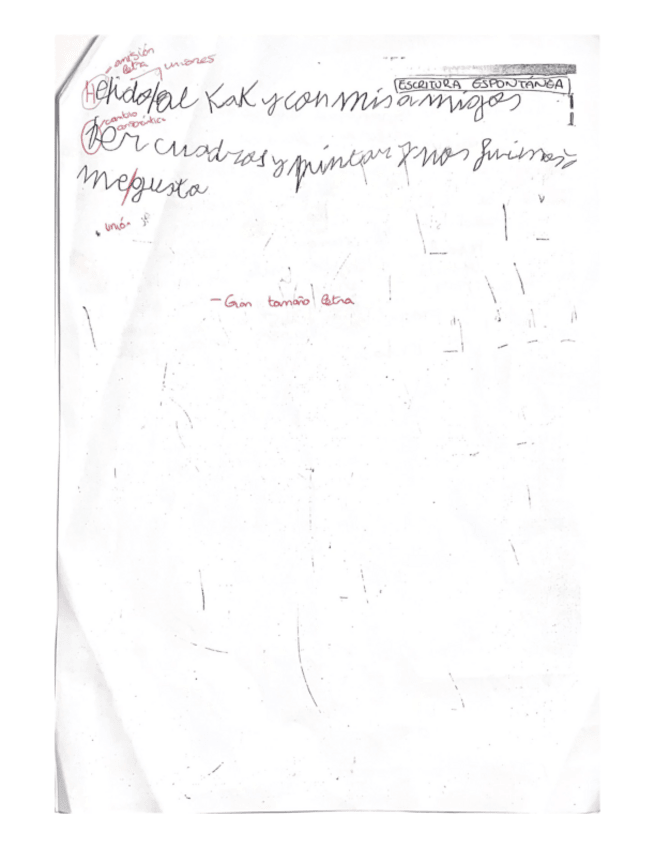 omisión
letra y uniones
ESCRITURA ESPONTÁNEA
Hehido/al KaK y con mis amigos
cambio
ber cuadros y pintar y nos fuimos
me/gusta
unió
- Gran tamaño letra